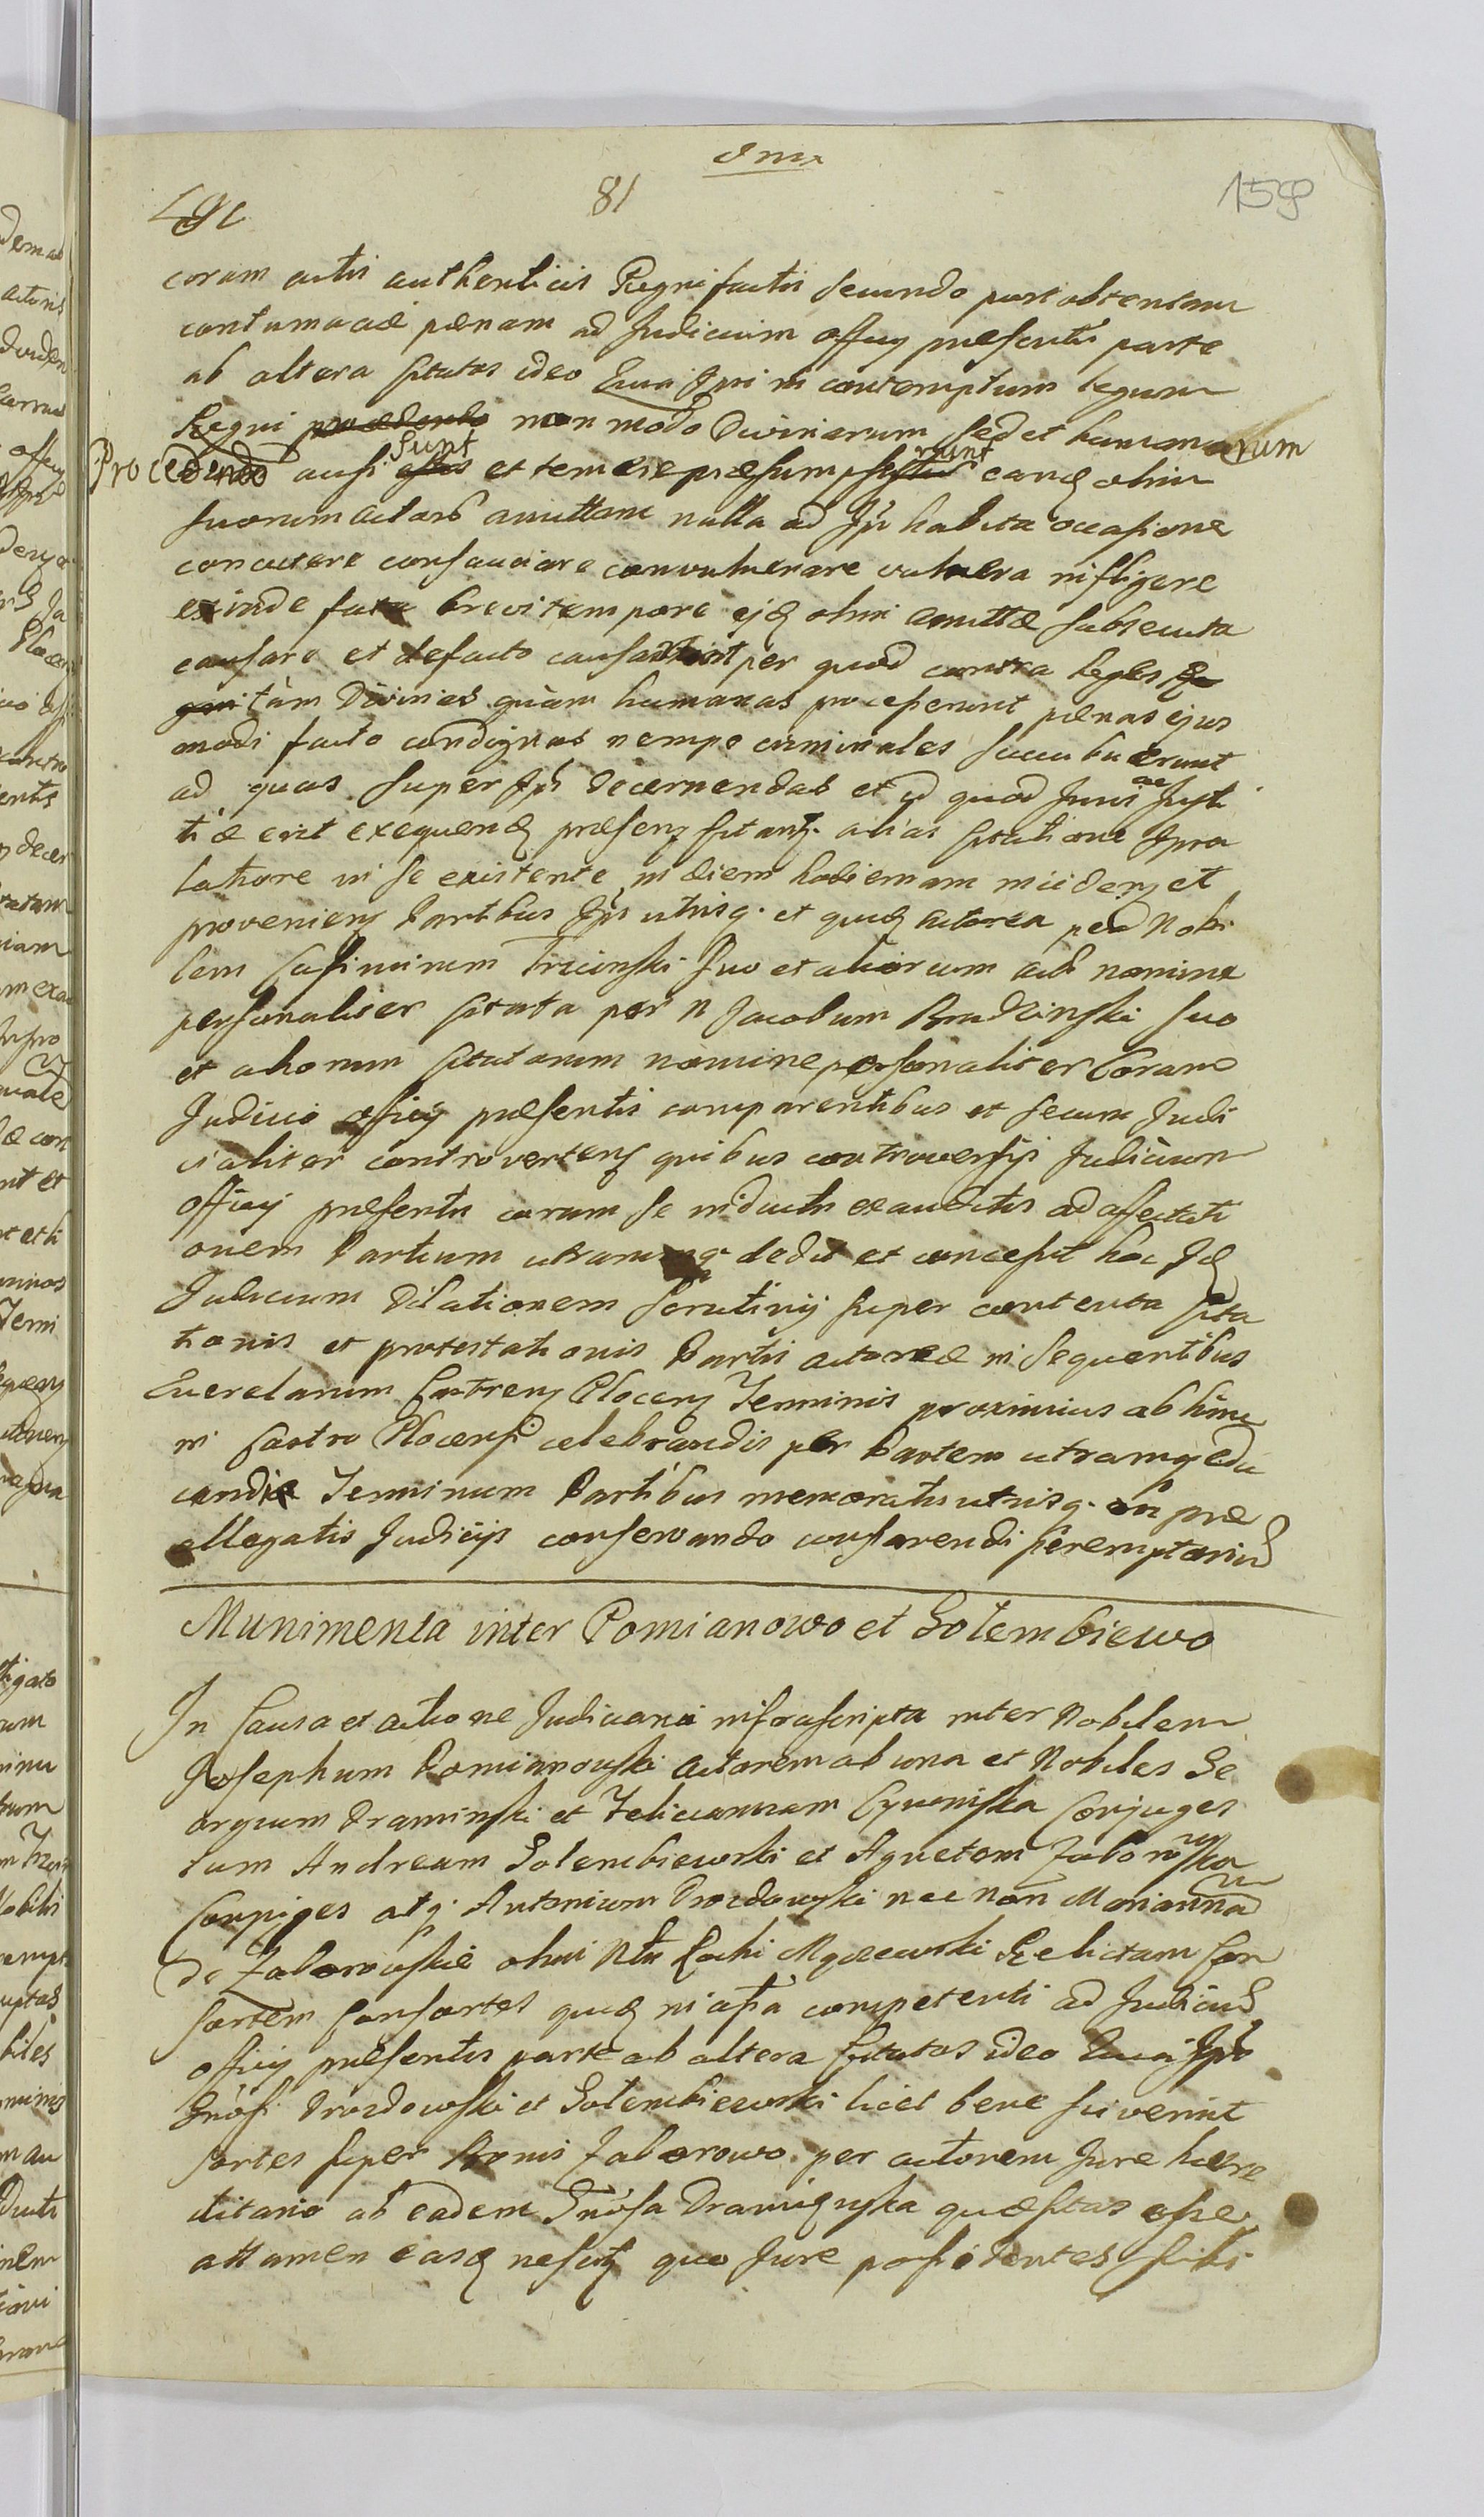 81
159
coram actis authenticis Regni factis secundo post obtentam
contumaciæ pænam ad Judicium Officij præsentis parte
ab altera Citatos ideo Quia Ipsi in contemptum legum
Regni non modo Divinarum sed et humanarum
Procedendo ausi Sunt et temere præsumpserunt eandę olim
suorum actorũ amittam nulla ad Ips habita occasione
concutere consauciare convulnerare vulnera infligere
exinde fata brevi tempore ejdę olim amittæ subsecuta
causare et defacto causarunt per quod contra leges
tàm Divinas quàm humanas processerunt pænas ejus
modi facto condignas nempe criminales succubuerunt
ad quas super Ips decernendas et id quod Juris ac Justi
tiæ erit exequendę præsenj Citantj alias Citatione Ipsa
latiore in se existente in diem hodiernam incidenj et
provenienj Partibus Ips utrisq. et quidę actorea per Nobi
lem Casimirum Trzcinski suo et aliorum actorũ nomine
personaliter Citata per N Jacobum Brudzinski suo
et aliorum Citatorum nomine personaliter Coram
Judicio officij præsentis comparentibus et secum Judi
cialiter controvertenj quibus controversijs Judicium
Officij præsentis coram se inductis exauditis ad affectati
onem Partium utrarumq. dedit et concessit hoc Idę
Judicium Dilationem Scrutinij super contenta Cita
tionis et protestationis Partis actoreæ in sequentibus
Querelarum Castrenj Plocenj Terminis proximius ab hinc
in Castro Plocensi celebrandis per Partem utramq. edu
cendi Terminum Partibus memoratis utrisq. in præ
allegatis Judicijs conservando comparendi peremptoriũ
Munimenta inter Pomianowo et Gołembiewo
In Causa et actione Judiciaria infrascripta inter Nobilem
Josephum Pomianowski Actorem ab una et Nobiles Ge
orgium Draminski et Feliciannam Cywinska Conjuges
tum Andream Golembiewski et Agnetem Zaborowska
Conjuges atq. Antonium Drozdowski nec non Mariannã
de Zaborowskie olim Nlis Rochi Mgoewski Relictam Con
sortem Consortes quidę in assa competenti ad Judiciũ
officij præsentis parte ab altera Citatos ideo Quia Ips
Gnosi Drozdowski et Gołembiewski licet bene sciverint
sortes super Bonis Zaborowo per actorem Jure hære
ditario ab eadem Gnosa Dramięnska quæsitas esse
attamen easdę nescitj quo Jure possidentes sibi